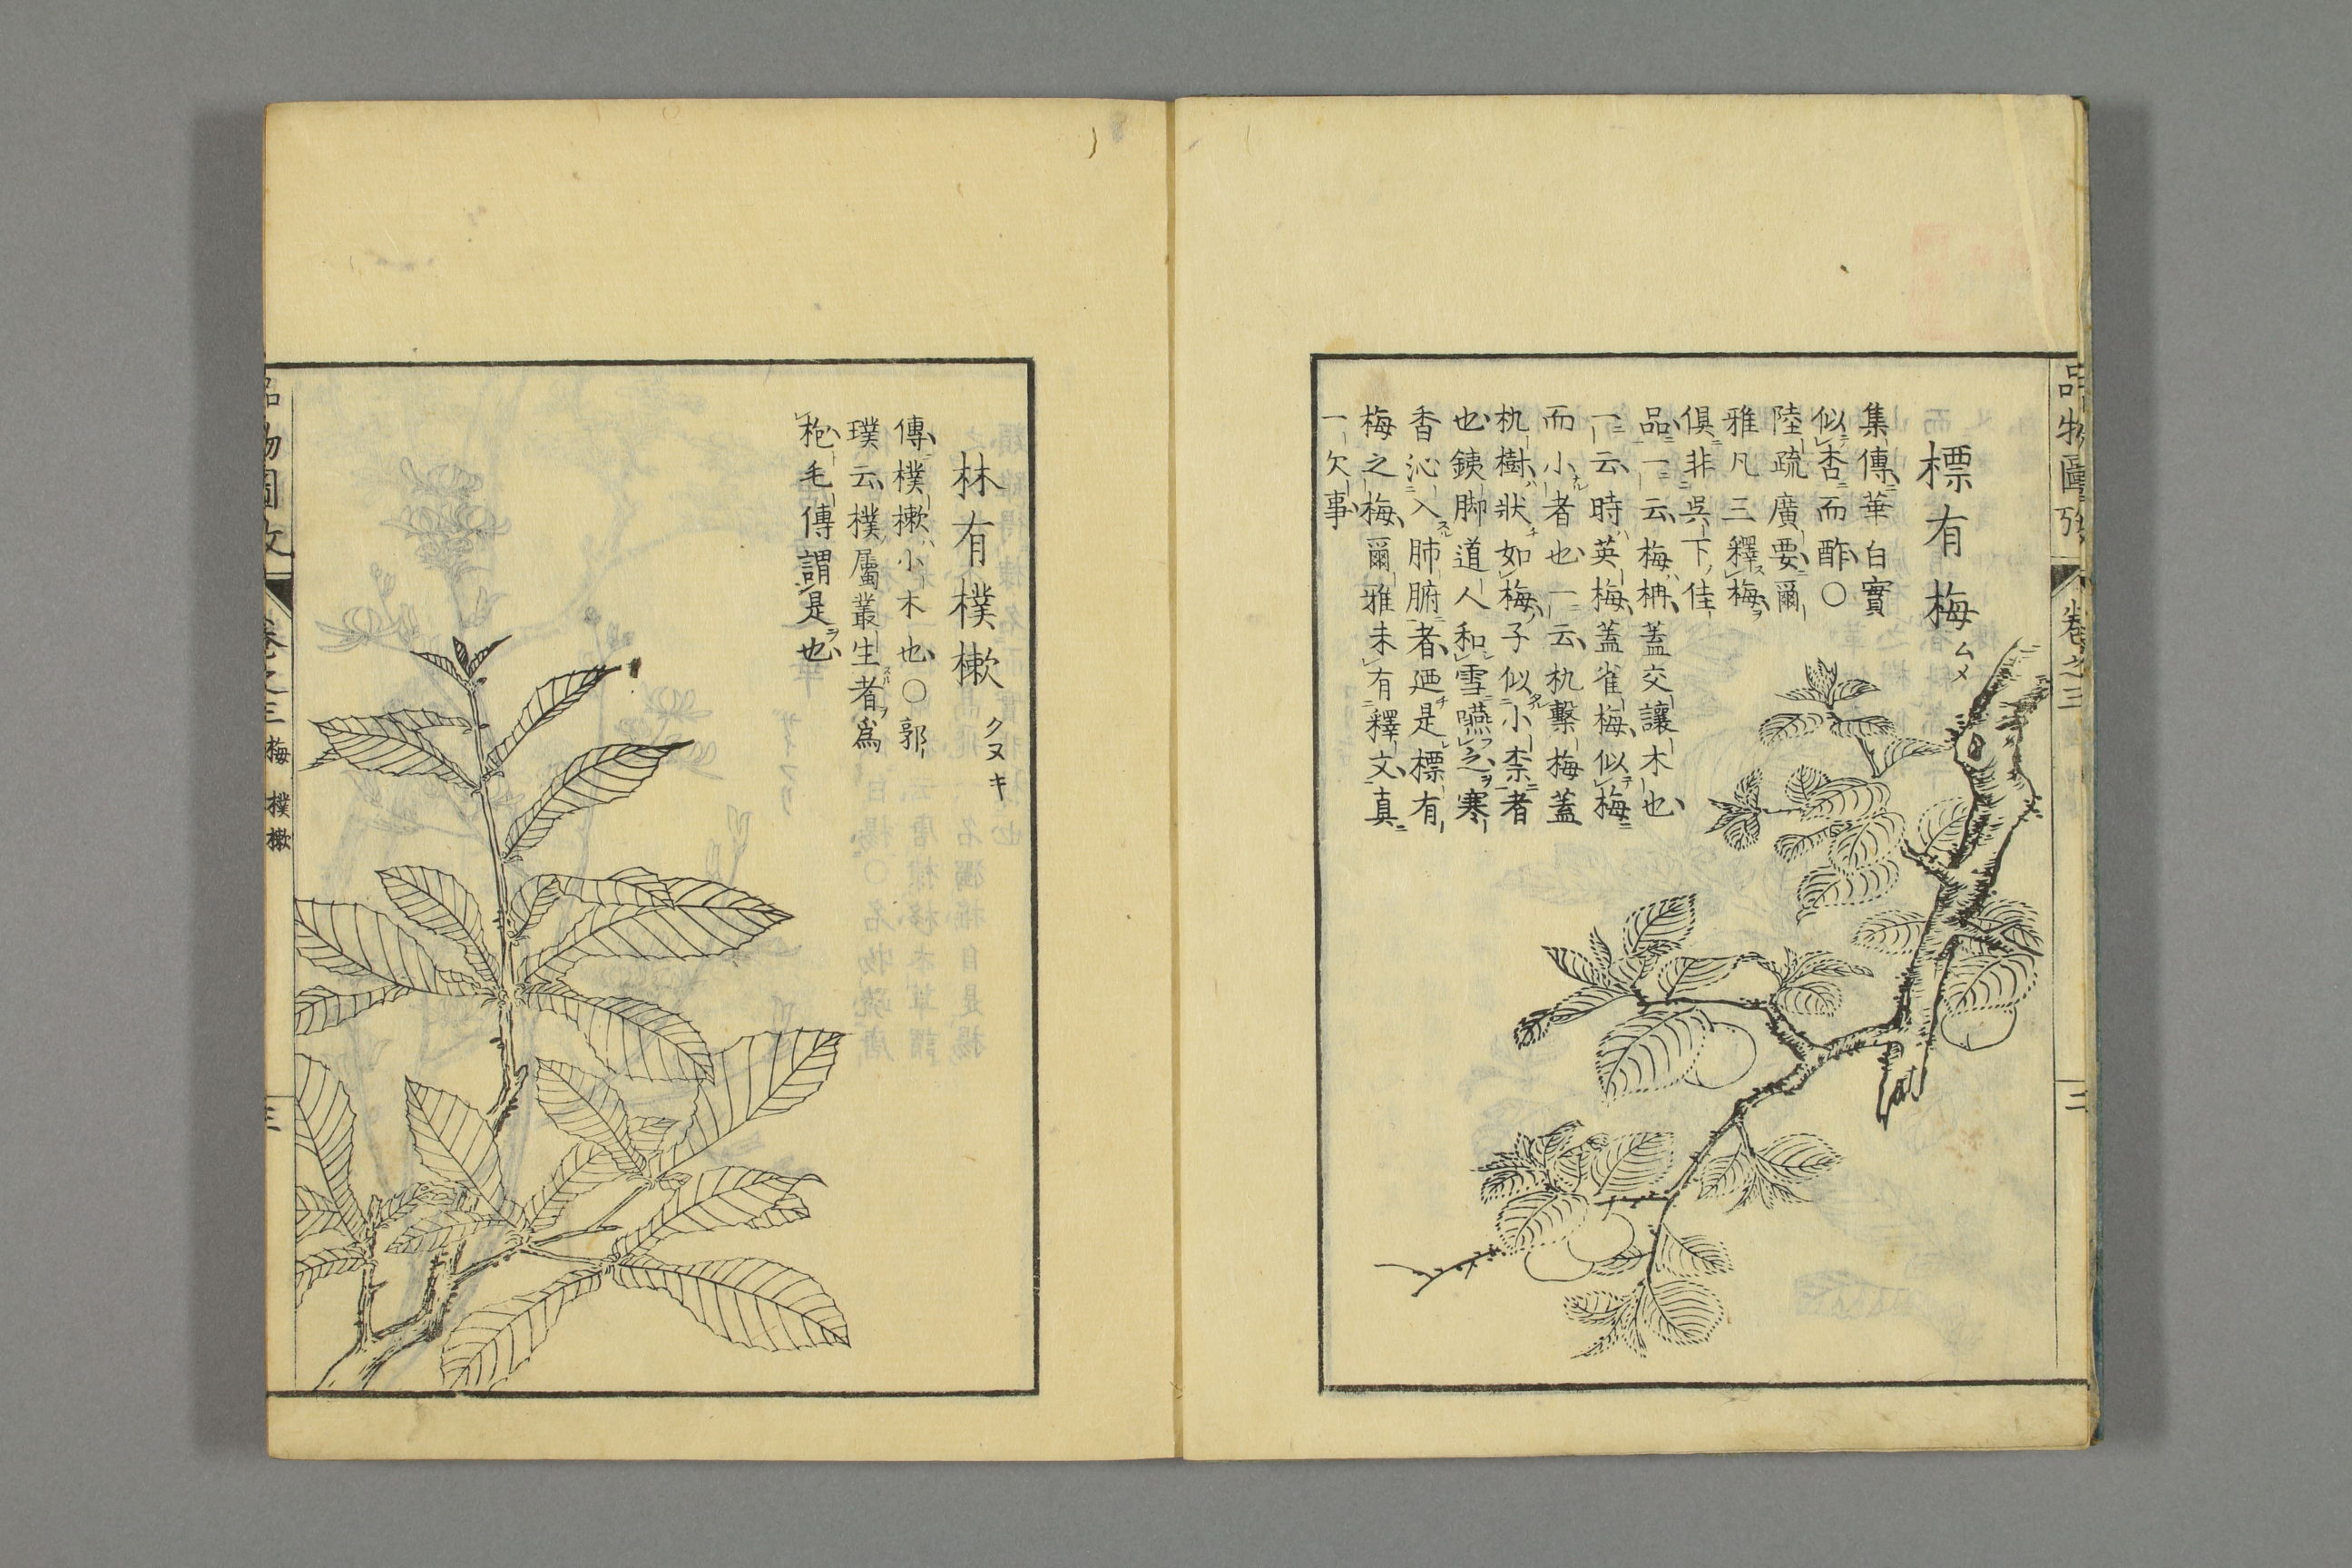 品物圖攷
卷之三
三
標有梅
ムメ
集傳華白實
似杏而酢○
陸疏廣要爾
雅凡三釋梅
俱非呉下佳
品一云梅枏蓋交讓木也
一云時英梅蓋雀梅似梅
而小者也一云朹繫梅蓋
朹樹狀如梅子似小柰者
也銕脚道人和雪嚥之寒
香沁入肺腑者廼是標有
梅之梅爾雅未有釋文真
一欠事
林有樸樕
クヌキ
傳樸樕小木也○郭
璞云樸屬叢生者爲
枹毛傳謂是也
品物圖攷
卷之三
梅 樸樕
三